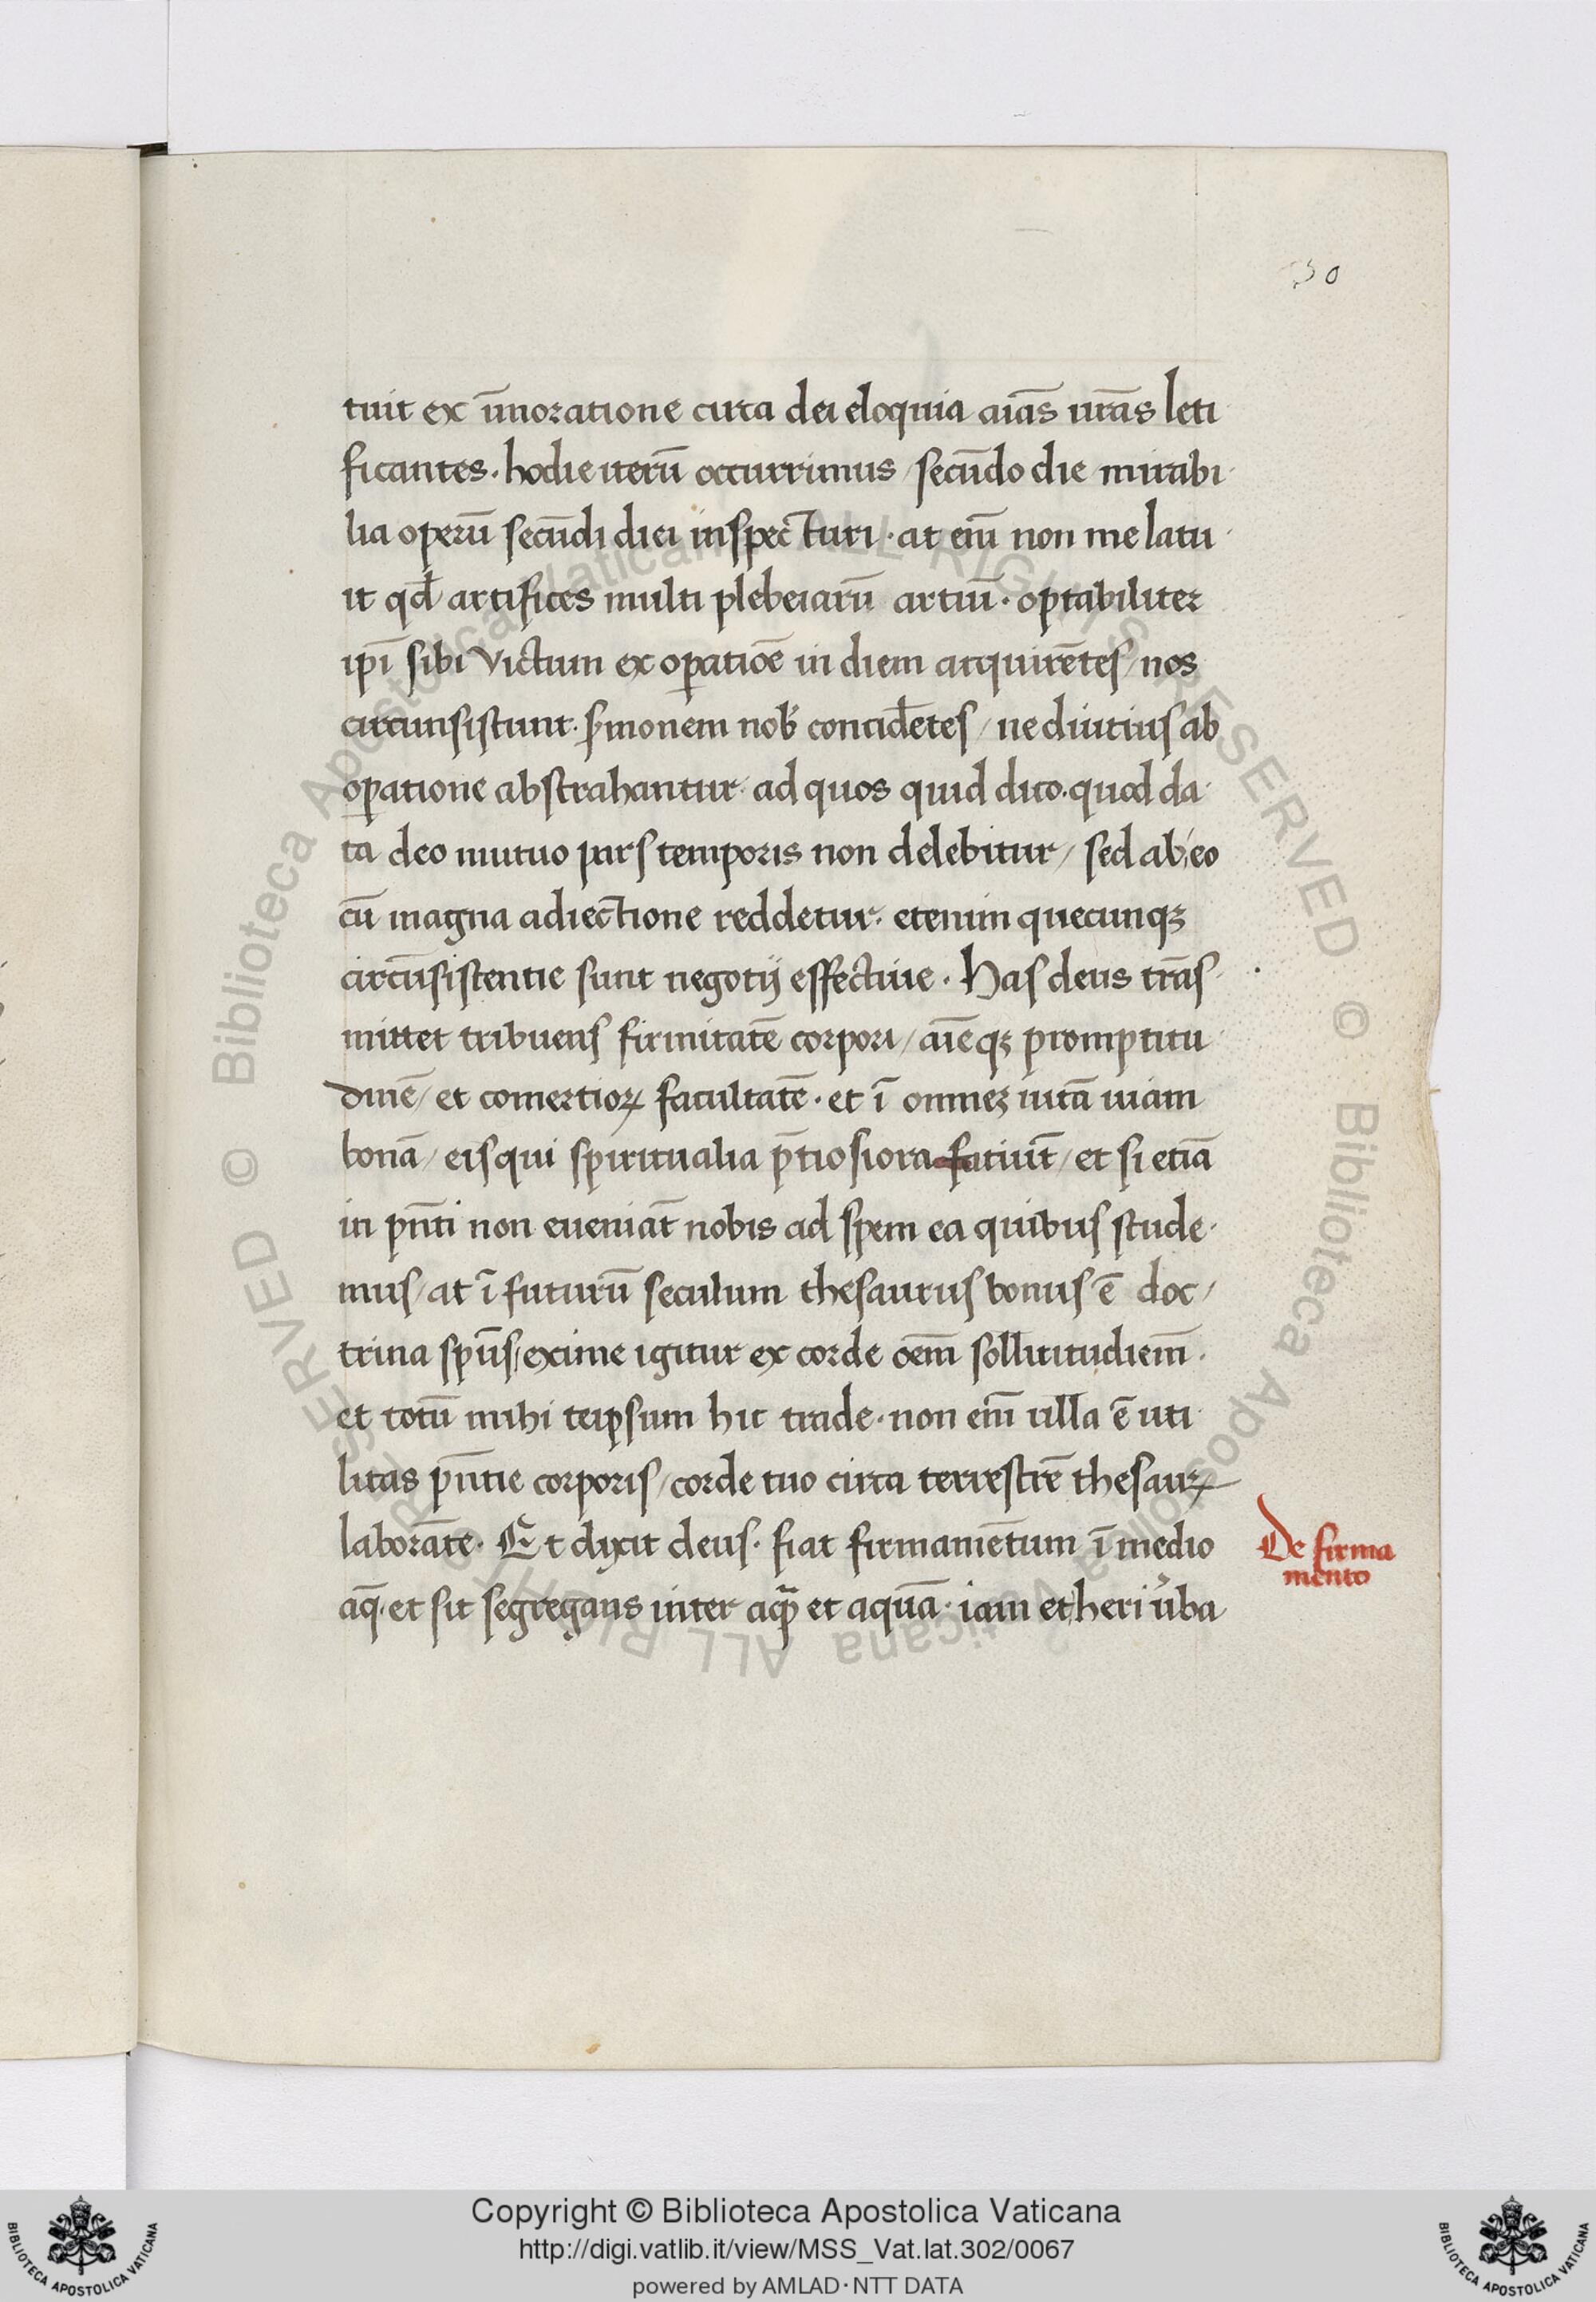 30
tuit ex ūnoratione circa dei eloquia aīas ur̄as leti
ficantes. hodie iterū occurrimus / secūdo die mirabi
lia operū secūdi diei inspecturi. at eiū non me latu
it qđ artifices multi plebeiarū artiū. optabiliter
ip̄i sibi victum ex op̱atiōe in diem acquirētes / nos
circunsistunt. s̄monem nob̄ concid̄etes / ne diutius ab
op̱atione abstrahantur. ad quos quid dico. quod da
ta deo mutuo pars temporis non delebitur / sed ab eo
cū magna adiectione reddetur. etenim quecunqꝫ
circūsistentie sunt negotij effectiue. Has deus trās
mittet tribuens firmitatē corpori / aīeqꝫ promptitu
dinē / et comertioꝝ facultatē. et ī omneꝫ uitā uiam
bonā / eis qui spiritualia p̄tiosiora fatiūt / et si etiā
in pn̄ti non eueniāt nobis ad spem ea quibus stude
mus / at ī futurū seculum thesaurus bonus ē doc /
trina spūs / exime igitur ex corde oēm sollicitudiem̄.
et totū mihi teipsum hic trade. non eiū ulla ē uti
litas pn̄tie corporis / corde tuo circa terrestrē thesauꝝ
laborāte. Et dixit deus. fiat firmamētum ī medio
aq̄. et sit segregans inter aqᷓ et aquā. iam et heri u̓ba
De firma
mento
Copyright © Biblioteca Apostolica Vaticana
http://digi.vatlib.it/view/MSS_Vat.lat.302/0067
powered by AMLAD·NTT DATA